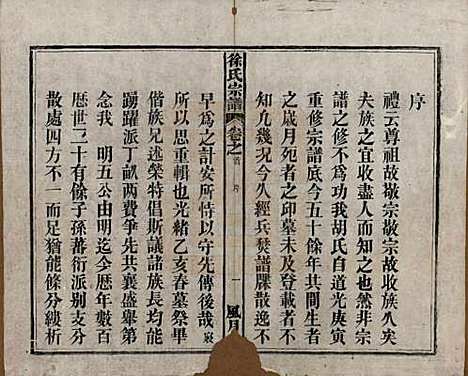 序
禮云尊祖故敬宗敬宗故收族久矣
夫族之宜收盡人而知之也然非宗
譜之修不為功我胡氏自道光庚寅
重修宗譜底今五十餘年其間生者
之歲月死者之卯墓未及登載者不
知凡幾況今久經兵燹譜牒散逸不
徐氏宗譜 卷之首 序 一 風月
早為之計安所恃以守先傳後哉
所以思重輯也光緒乙亥春墓祭畢
偕族兄逑榮特倡斯議諸族長均能
踴躍派丁畝兩費爭先共襄盛舉第
念我 明五公由明迄今歷年數百
歷世二十有餘子孫蕃衍派別支分
散處四方不一而足猶能條分縷析